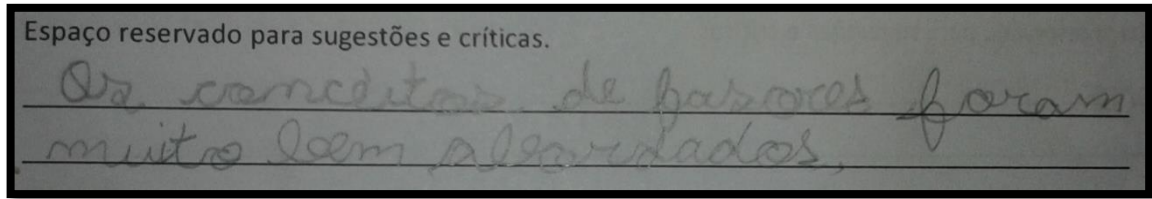 Espaço reservado para sugestões e críticas.
Os conceitos de fasores foram
muito bem abordados.